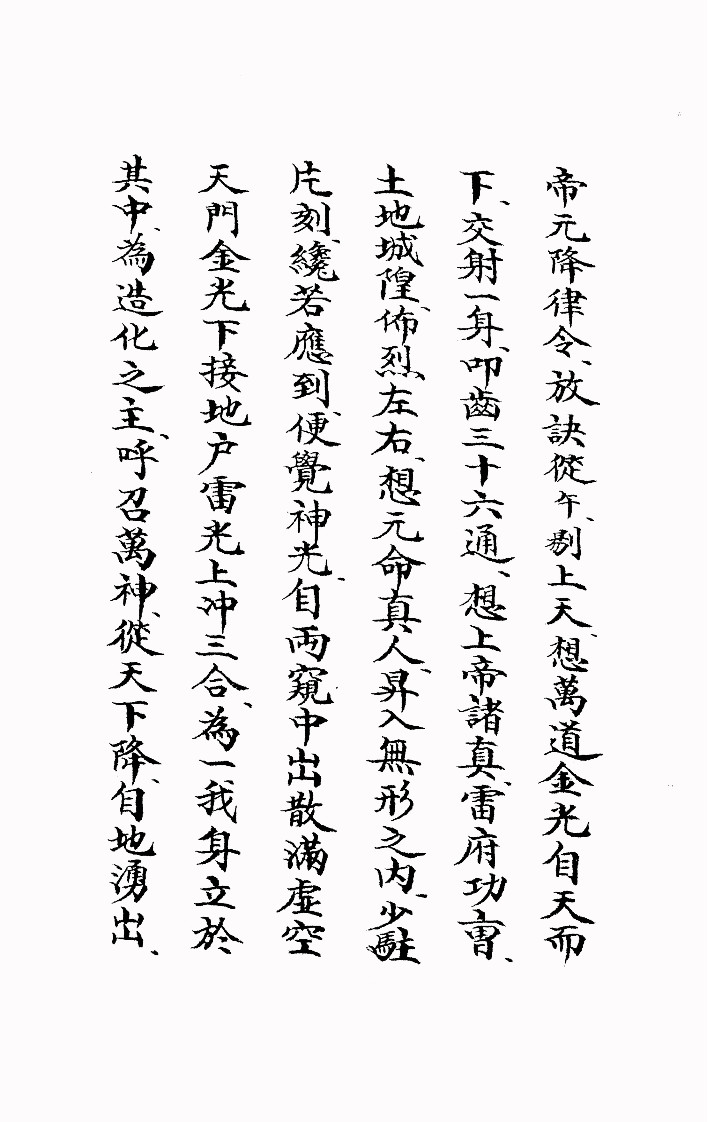 帝元降律令、放訣從午、剔上天、想萬道金光自天而
下、交射一身、叩齒三十六通、想上帝諸真、雷府功曹、
土地城隍、佈烈、左右、想元命真人、昇入無形之内、少駐
片刻、纔若應到、便覺神光、自両窺中出散滿虛空
天門金光下接地户雷光上冲三合、為一我身立於
其中、為造化之主、呼召萬神、從天下降、自地湧出、